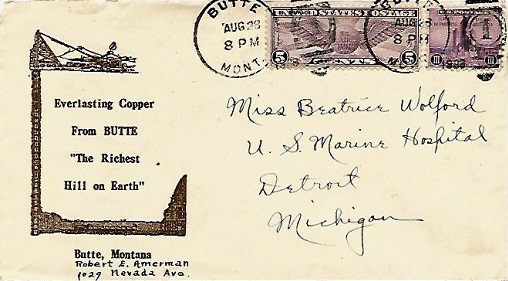 BUTTE
AUG 28
8 PM
MONT.
UNITED STATES POSTAGE
5 CENTS 5
BUTTE
AUG 28
8 PM
1
Everlasting Copper
From BUTTE
"The Richest
Hill on Earth"
Butte, Montana
Robert E. Amerman
1029 Nevada Ave.
Miss Beatrice Wolford
U. S. Marine Hospital
Detroit
Michigan